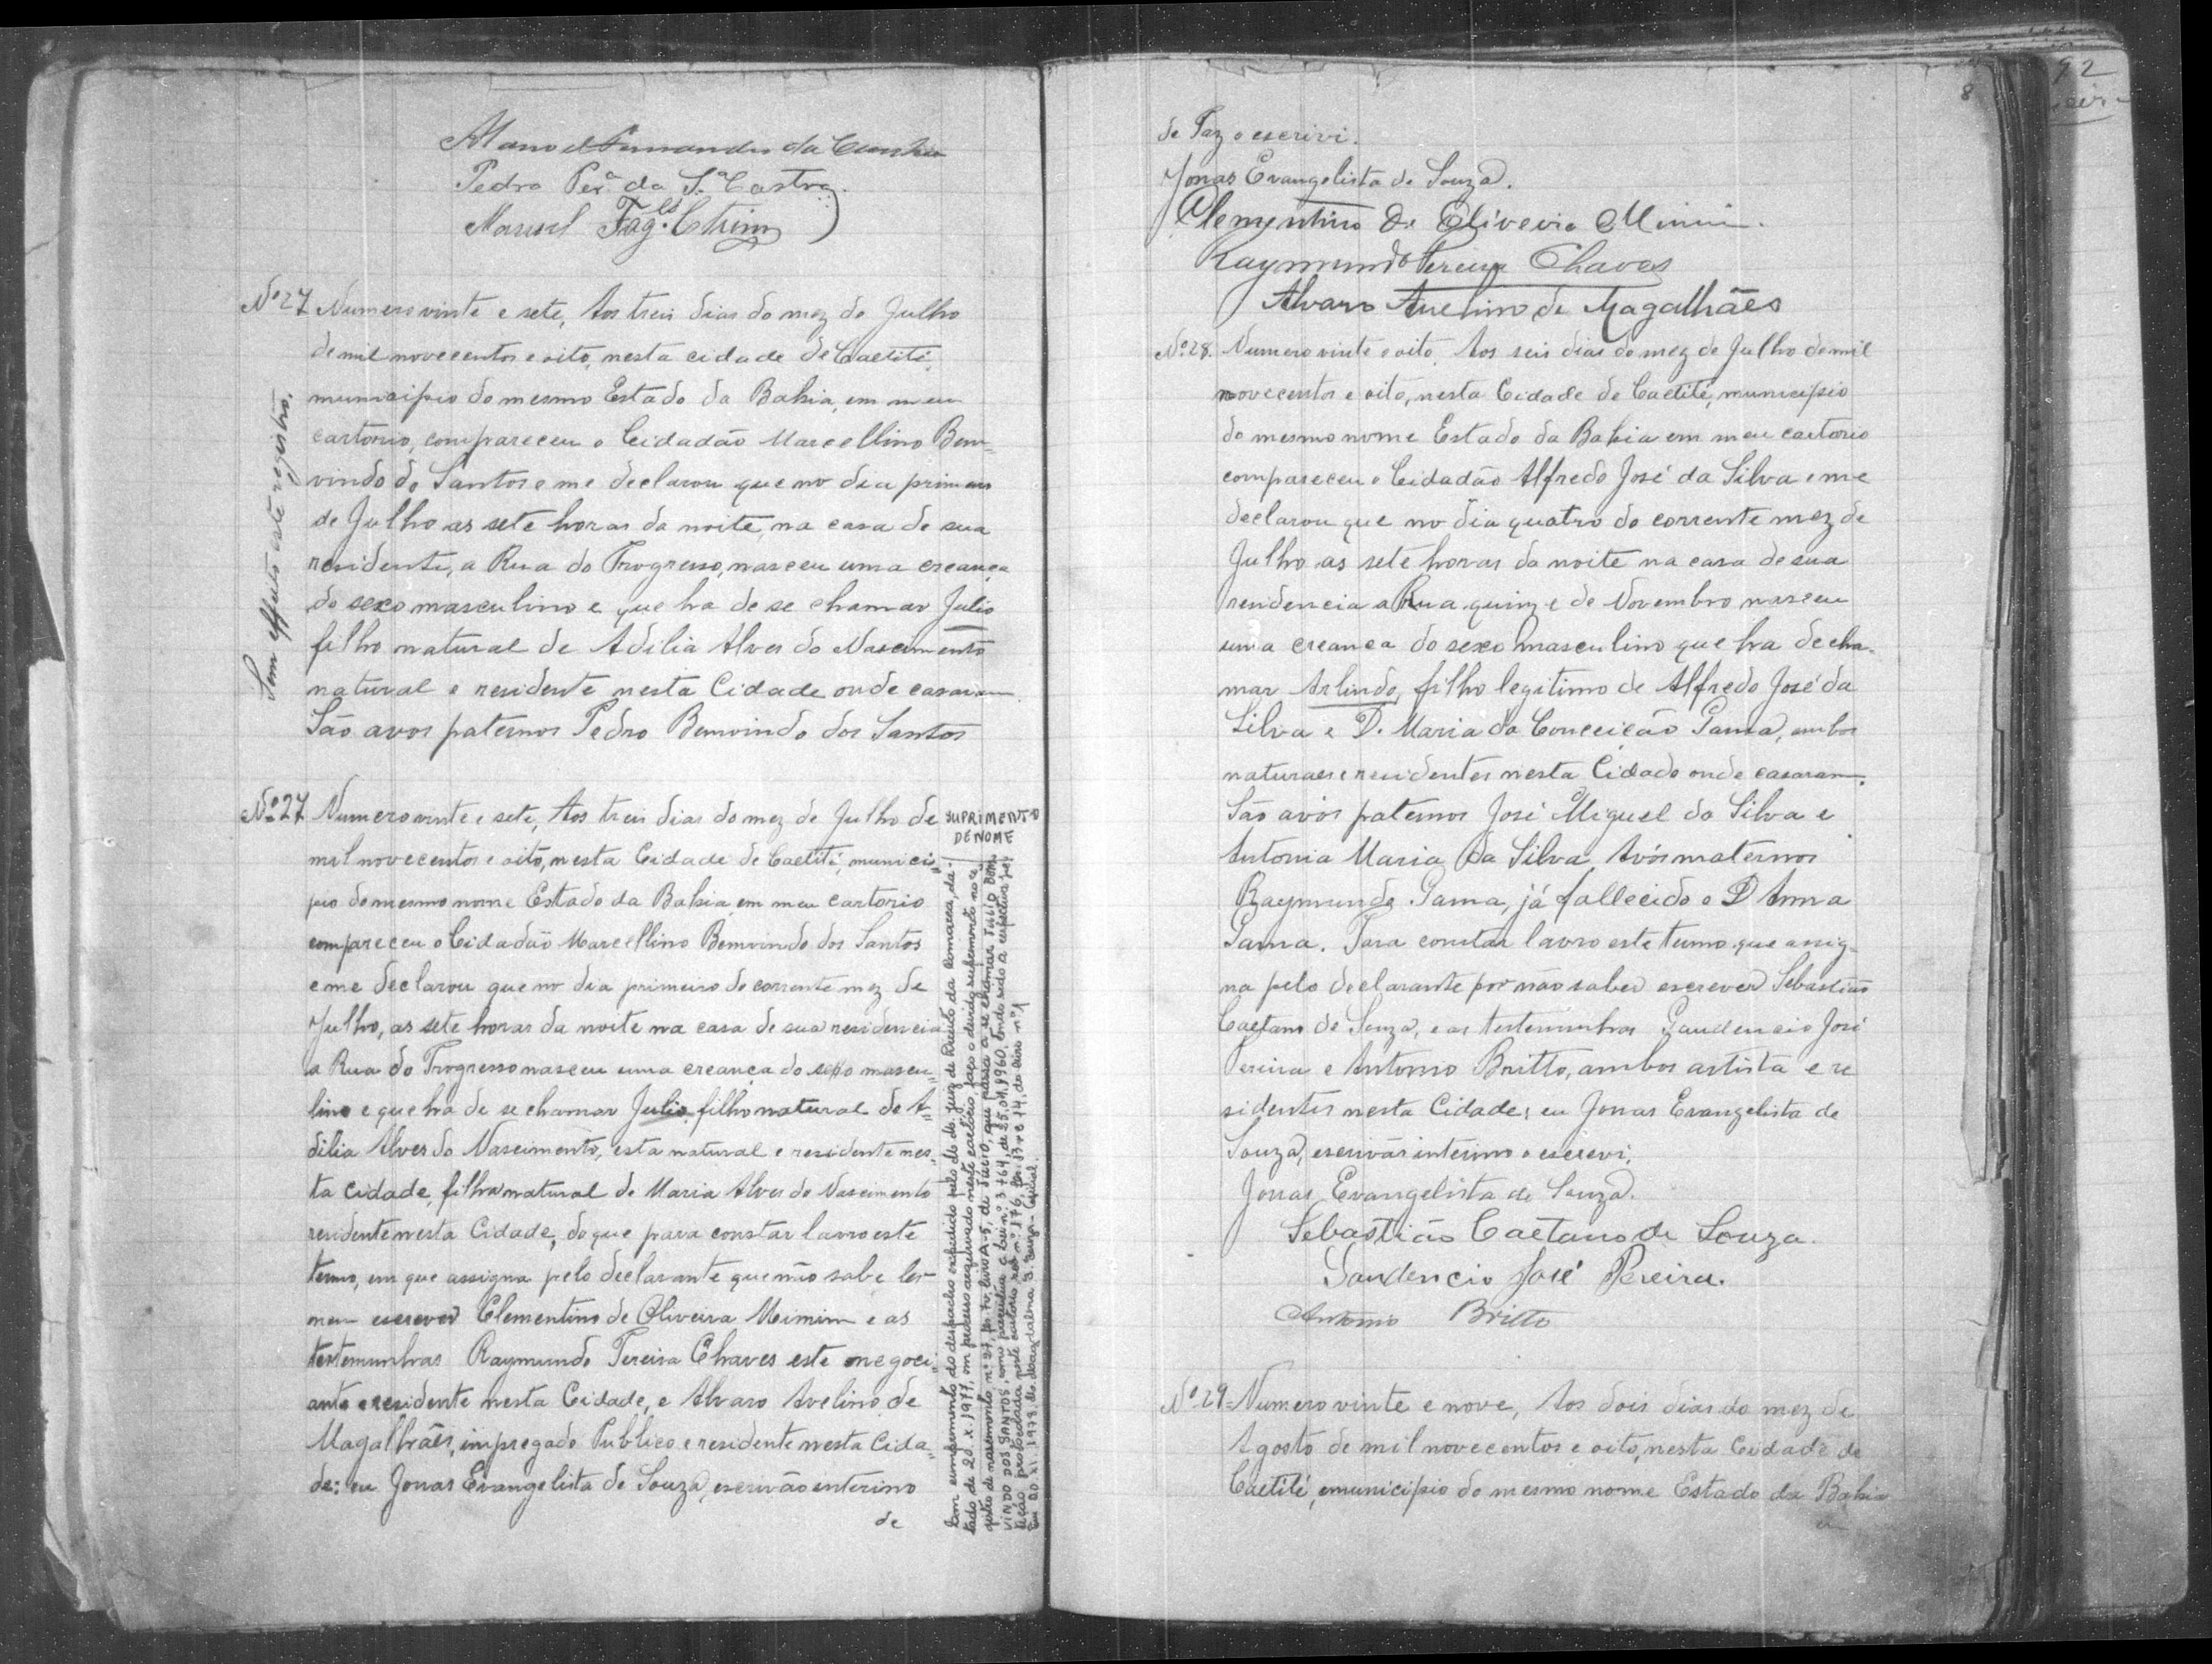 Manoel Fernandes da Cunha
Pedro Per.ª da S.ª Castro.
Manoel Fag.es
Nº 27 Numero vinte e sete, Aos treis dias do mez de Julho
de mil novecentos e oito, nesta cidade de Caetité,
municipio do mesmo Estado da Bahia, em meu
cartorio, compareceu o Cidadão Marcellino Bem-
vindo do Santos e me declarou que no dia primeiro
de Julho as sete horas da noite, na casa de sua
residente, a Rua do Progresso, nasceu uma creança
do sexo masculino e que ha de se chamar Julio
filho natural de Adilia Alves do Nascimento
natural e residente nesta Cidade onde casaram
São avos paternos Pedro Bemvindo dos Santos
Sem effeito este registro.
Nº 27 Numero vinte e sete, Aos treis dias do mez de Julho de
mil novecentos e oito, nesta Cidade de Caetité, munici-
pio do mesmo nome Estado da Bahia em meu cartorio
compareceu o Cidadão Marcellino Bemvindo dos Santos
e me declarou que no dia primeiro do corrente mez de
Julho, as sete horas da noite na casa de sua residencia
a Rua do Progresso nasceu uma creança do sexo mascu-
lino e que ha de se chamar Julio, filho natural de A-
dilia Alves do Nascimento, esta natural e residente nes-
ta cidade, filha natural de Maria Alves do Nascimento
residente nesta Cidade, do que para constar lavro este
termo, em que assigna pelo declarante que não sabe ler
nem escrever Clementino de Oliveira Mimim e as
testemunhas Raymundo Pereira Chaves este negoci-
ante e residente nesta Cidade, e Alvaro Avelino de
Magalhães, impregado Publico e residente nesta Cida-
de: eu Jonas Evangelista de Souza, escrivão interino
de
SUPRIMENTO
DE NOME
Em cumprimento do despacho exhibido pelo dr. juiz de Direito da Comarca, da-
tado de 20.x.1977, em processo arquivado neste cartorio, faço o devido suprimento no re-
gisto de nascimento nº 27, fs. 7v, livro A-5, de Júlio, que passa a se chamar JULIO BEM
VINDO DOS SANTOS, como preceitua a Lei nº 3764, de 25.04.1960, tendo sido a respectiva jus
tificação processada neste cartorio sob nº 176, fls. 13v e 14, do livro nº 1
Em 20.XI.1978. Magdalena S. Souza - Oficial.
de Paz o escrivi.
Jonas Evangelista de Souza.
Clementino de Oliveira Mimim.
Raymundo Pereira Chaves
Alvaro Avelino de Magalhães
Nº 28. Numero vinte e oito. Aos seis dias do mez de Julho de mil
novecentos e oito, nesta Cidade de Caetité, municipio
do mesmo nome Estado da Bahia em meu cartorio
compareceu o Cidadão Alfredo José da Silva e me
declarou que no dia quatro do corrente mez de
Julho as sete horas da noite na casa de sua
residencia a Rua quinze de Novembro nasceu
uma creanca do sexo masculino que ha de cha-
mar Arlindo, filho legitimo de Alfredo José da
Silva e D. Maria da Conceição Gama, ambos
naturaes e residentes nesta Cidade onde casaram.
São avós paternos José Miguel da Silva e
Antonia Maria da Silva Avós maternos
Raymundo Gama, já fallecido e D Anna
Gama. Para constar lavro este termo que assig-
na pelo declarante por não saber escrever Sebastião
Caetano de Souza, e as testemunhas Gaudencio José
Pereira e Antonio Britto, ambos artista e re
sidentes nesta Cidade; eu Jonas Evangelista de
Souza, escrivão interino o escrevi.
Jonas Evangelista de Souza.
Sebastião Caetano de Souza.
Gaudencio José Pereira.
Antonio Britto
Nº 29 Numero vinte e nove, Aos dois dias do mez de
Agosto de mil novecentos e oito, nesta Cidade de
Caetité, municipio do mesmo nome Estado da Bahia
em
8
92